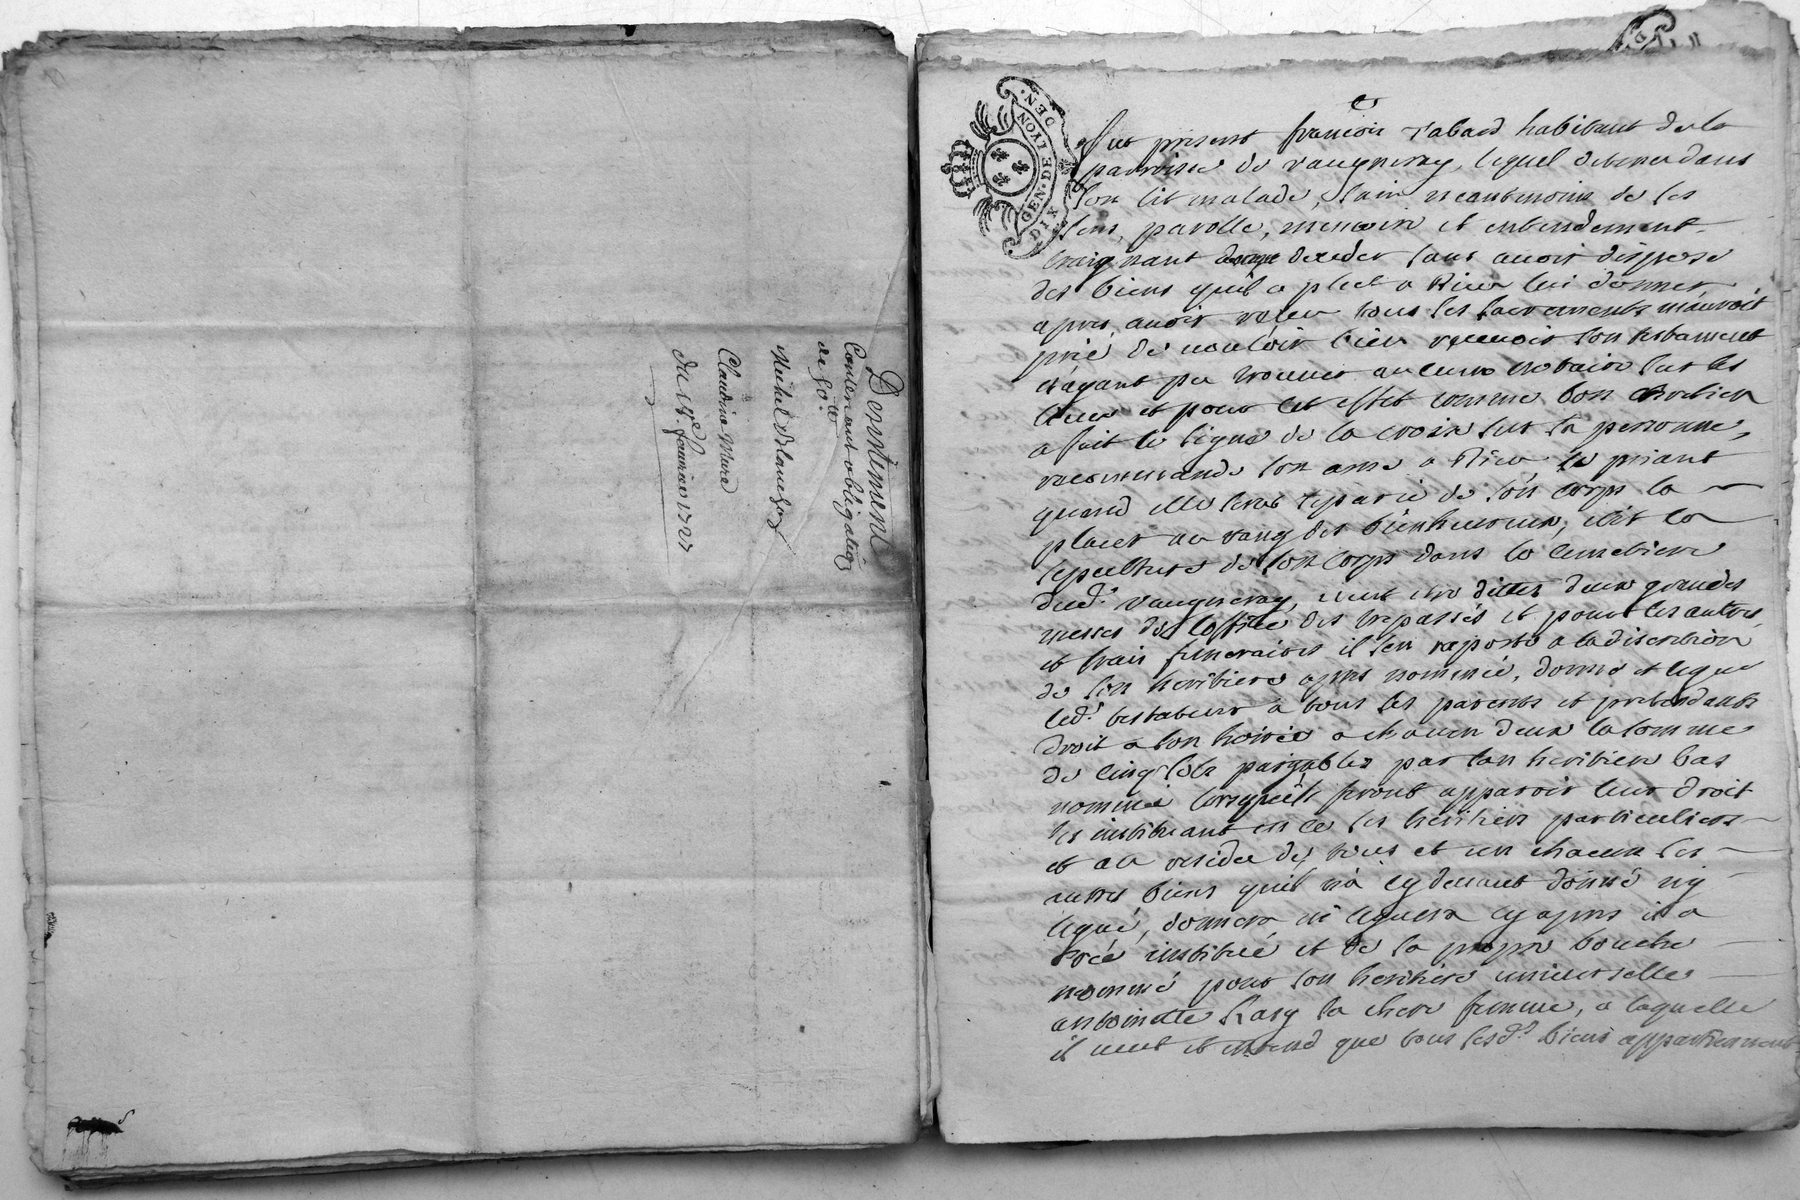 Dernierement
Contenant obligation
de 50.tt
Michel Blanchoz
Claudine Mure
du 14.e fevrier 1727
GEN. DE LYON
DIX DEN.
Fut present francois rabard habitant de la
parroisse de vaugneray, lequel detenu dans
son lit malade, sain neantmoins de ses
sens, parolle, memoire et entendement
craignant de deceder sans avoir dispose
des biens quil a pleut a Dieu lui donner
apres avoir receu tous les sacrements m'auroit
prié de vouloir bien recevoir son testament
n'ayant pu trouver aucun notaire sur les
lieux et pour cet effet comme bon chretien
a fait le signe de la croix sur sa personne,
recommande son ame a Dieu, le priant
quand elle serat separée de son corps la
placer au rang des bienheureux, élit la
sepulture de son corps dans le cemetiere
dud.t vaugneray, veut etre dittes deux grandes
messes de l'office des trepassés et pour les autres
et frais funeraires il s'en raporte a la discretion
de son heritiere apres nommée, donne et legue
led.t testateur a tous ses parents et pretendants
droit a son hoirie a chacun deux la somme
de cinq sols payables par son heritiere bas
nommée lorsquils feront apparoir leur droit
les instituant en ce ses heritiers particuliers
et au residu de tous et un chacun ses
autres biens quil n'a cy devant donné ny
legué, donnera ni leguera cy apres il a
créé institué et de sa propre bouche
nommé pour son heritiere universelle
antoinette sa chere femme, a laquelle
il veut et entend que tous sesd.ts biens appartiennent